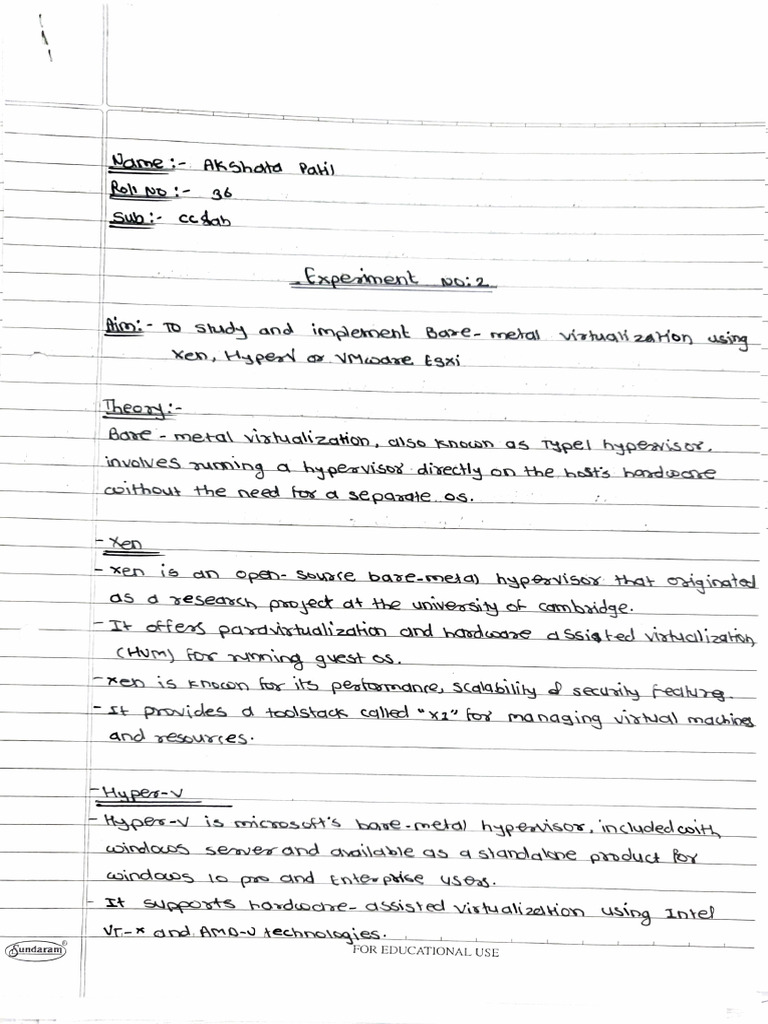 Name :- Akshata Patil
Roll No :- 36
Sub :- CC Lab
Experiment No: 2
Aim :- To study and implement Bare-metal virtualization using
Xen, HyperV or VMware Esxi
Theory :-
Bare-metal virtualization, also known as Type1 hypervisor,
involves running a hypervisor directly on the host's hardware
without the need for a separate os.
- Xen
- Xen is an open-source bare-metal hypervisor that originated
as a research project at the university of cambridge.
- It offers paravirtualization and hardware assisted virtualization
(HVM) for running guest os.
- Xen is known for its performance, scalability & security feature.
- It provides a toolstack called "xl" for managing virtual machines
and resources.
- Hyper-V
- Hyper-V is microsoft's bare-metal hypervisor, included with
windows server and available as a standalone product for
windows 10 pro and Enterprise users.
- It supports hardware-assisted virtualization using Intel
VT-x and AMD-V technologies.
Sundaram®
FOR EDUCATIONAL USE